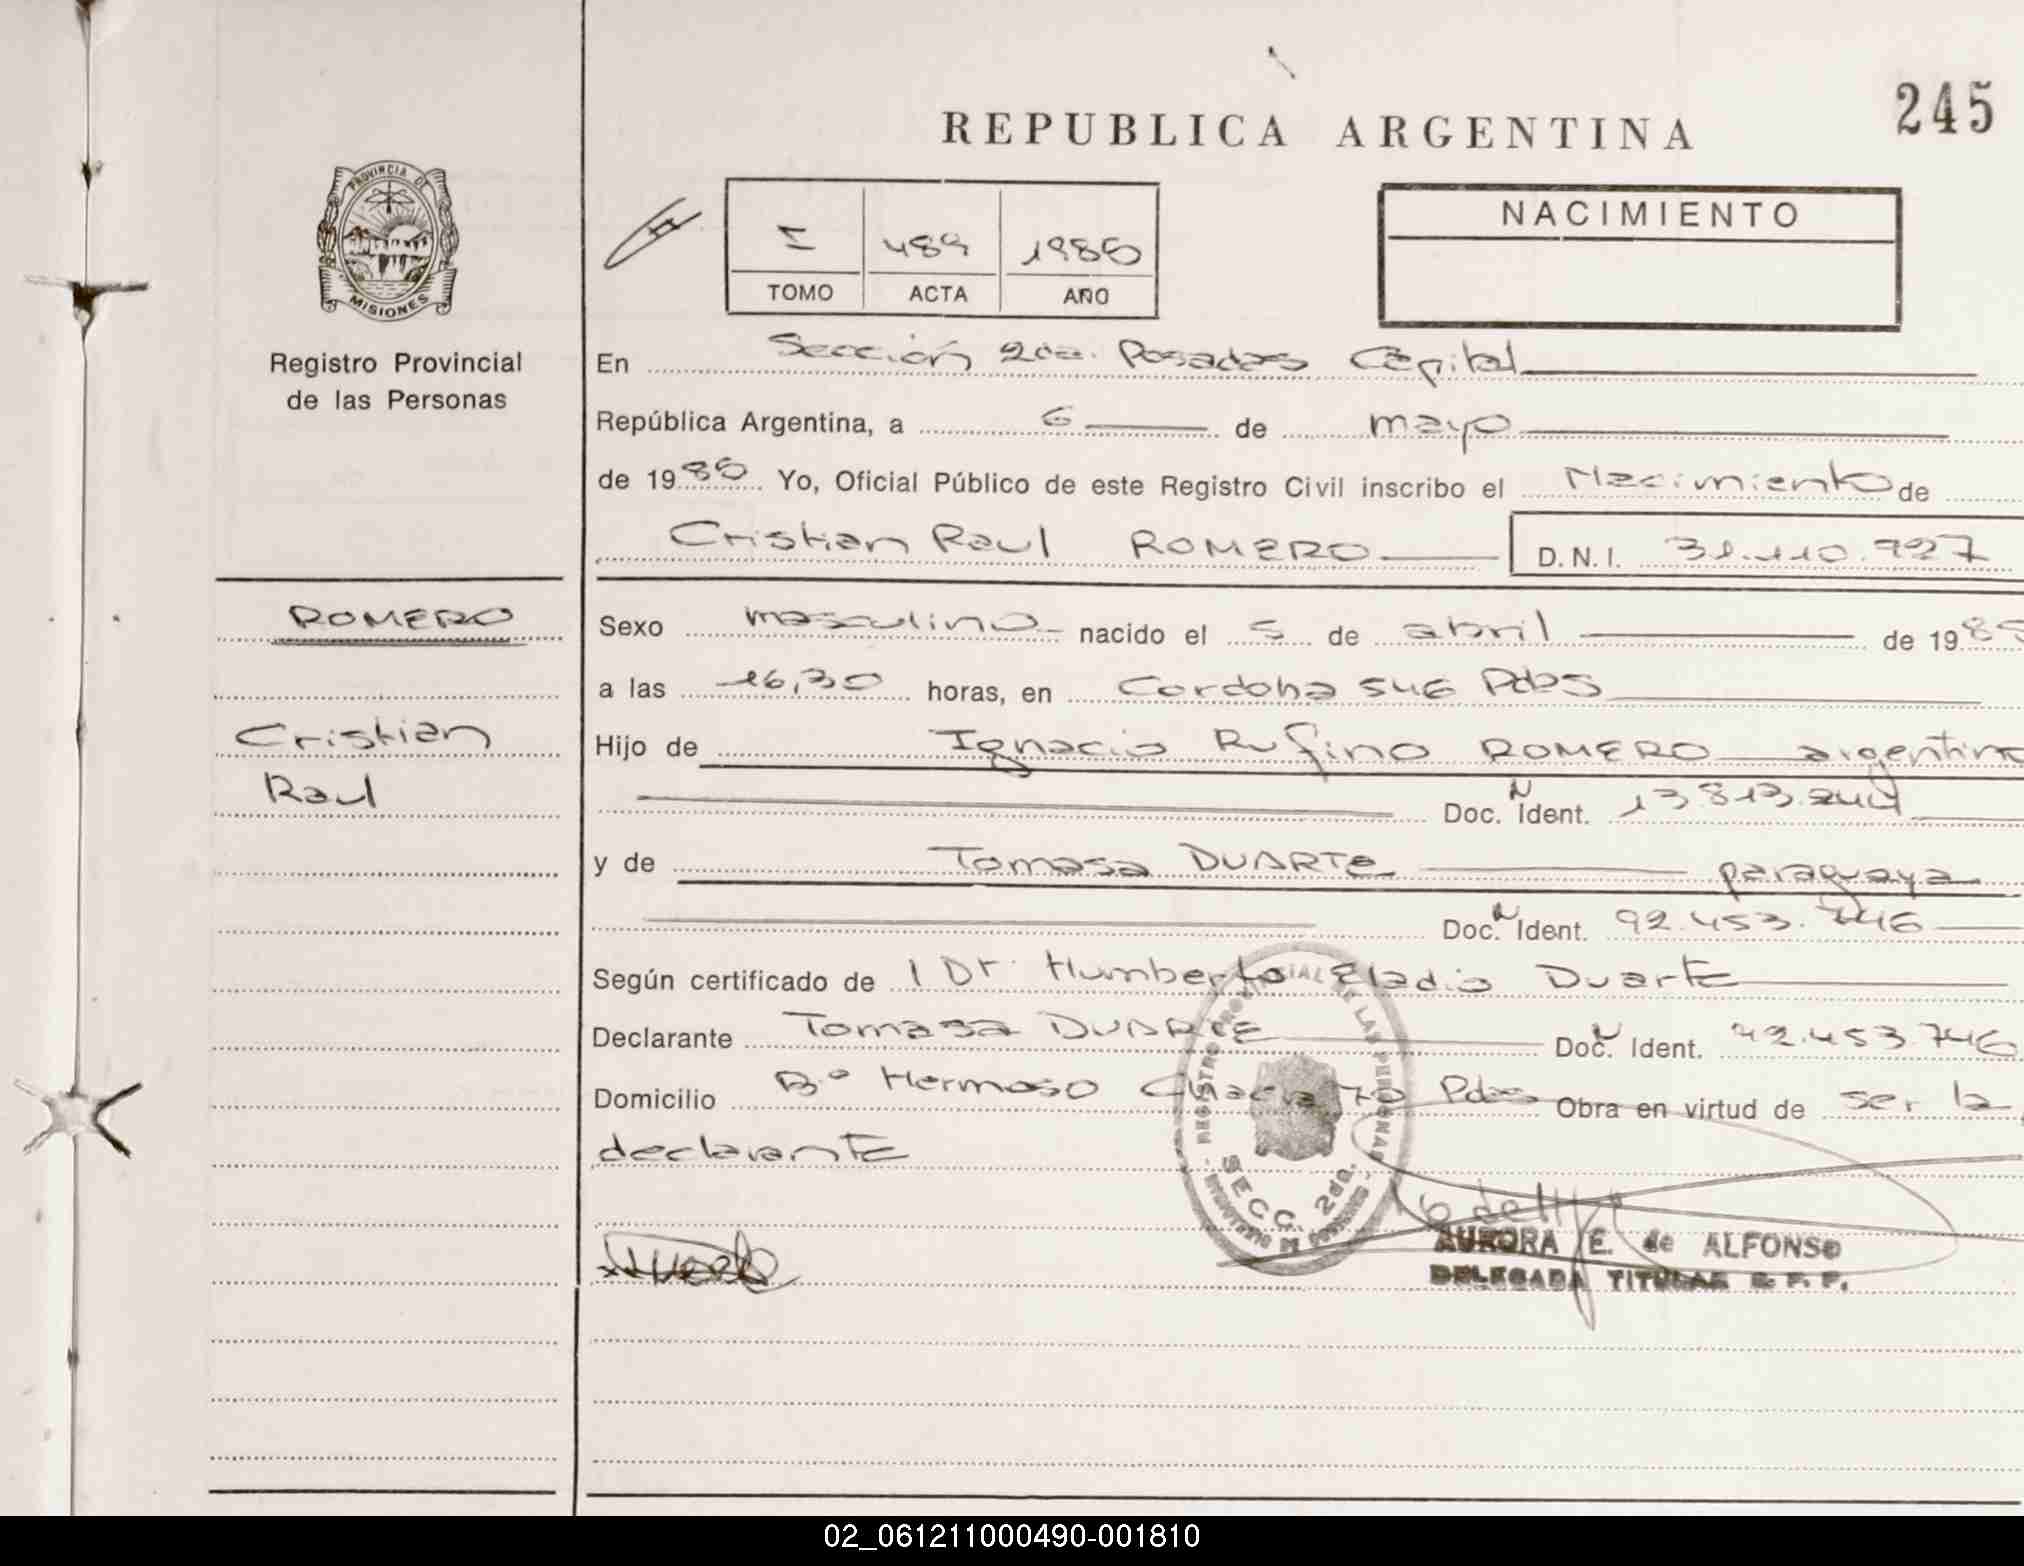 245
REPUBLICA ARGENTINA
PROVINCIA DE
MISIONES
Registro Provincial
de las Personas
I 489 1985
TOMO ACTA AÑO
NACIMIENTO
En Sección 2da. Posadas Capital
República Argentina, a 6 de mayo
de 1985 Yo, Oficial Público de este Registro Civil inscribo el Nacimiento de
Cristian Raul ROMERO D.N.I. 31.110.927
ROMERO
Cristian
Raul
Sexo masculino nacido el 5 de abril de 1985
a las 16,30 horas, en Cordoba 546 Pdas
Hijo de Ignacio Rufino ROMERO argentino
Doc. N Ident. 13.813.244
y de Tomasa DUARTE paraguaya
Doc. N Ident. 92.453.746
Según certificado de l Dr. Humberto Eladio Duarte
Declarante Tomasa DUARTE Doc. N Ident. 92.453.746
Domicilio Bº Hermoso Chacra 70 Pdas Obra en virtud de ser la
declarante
REGISTRO PROVINCIAL DE LAS PERSONAS
SECC. 2da.
AURORA E. de ALFONSO
DELEGADA TITULAR R. P. P.
02_061211000490-001810